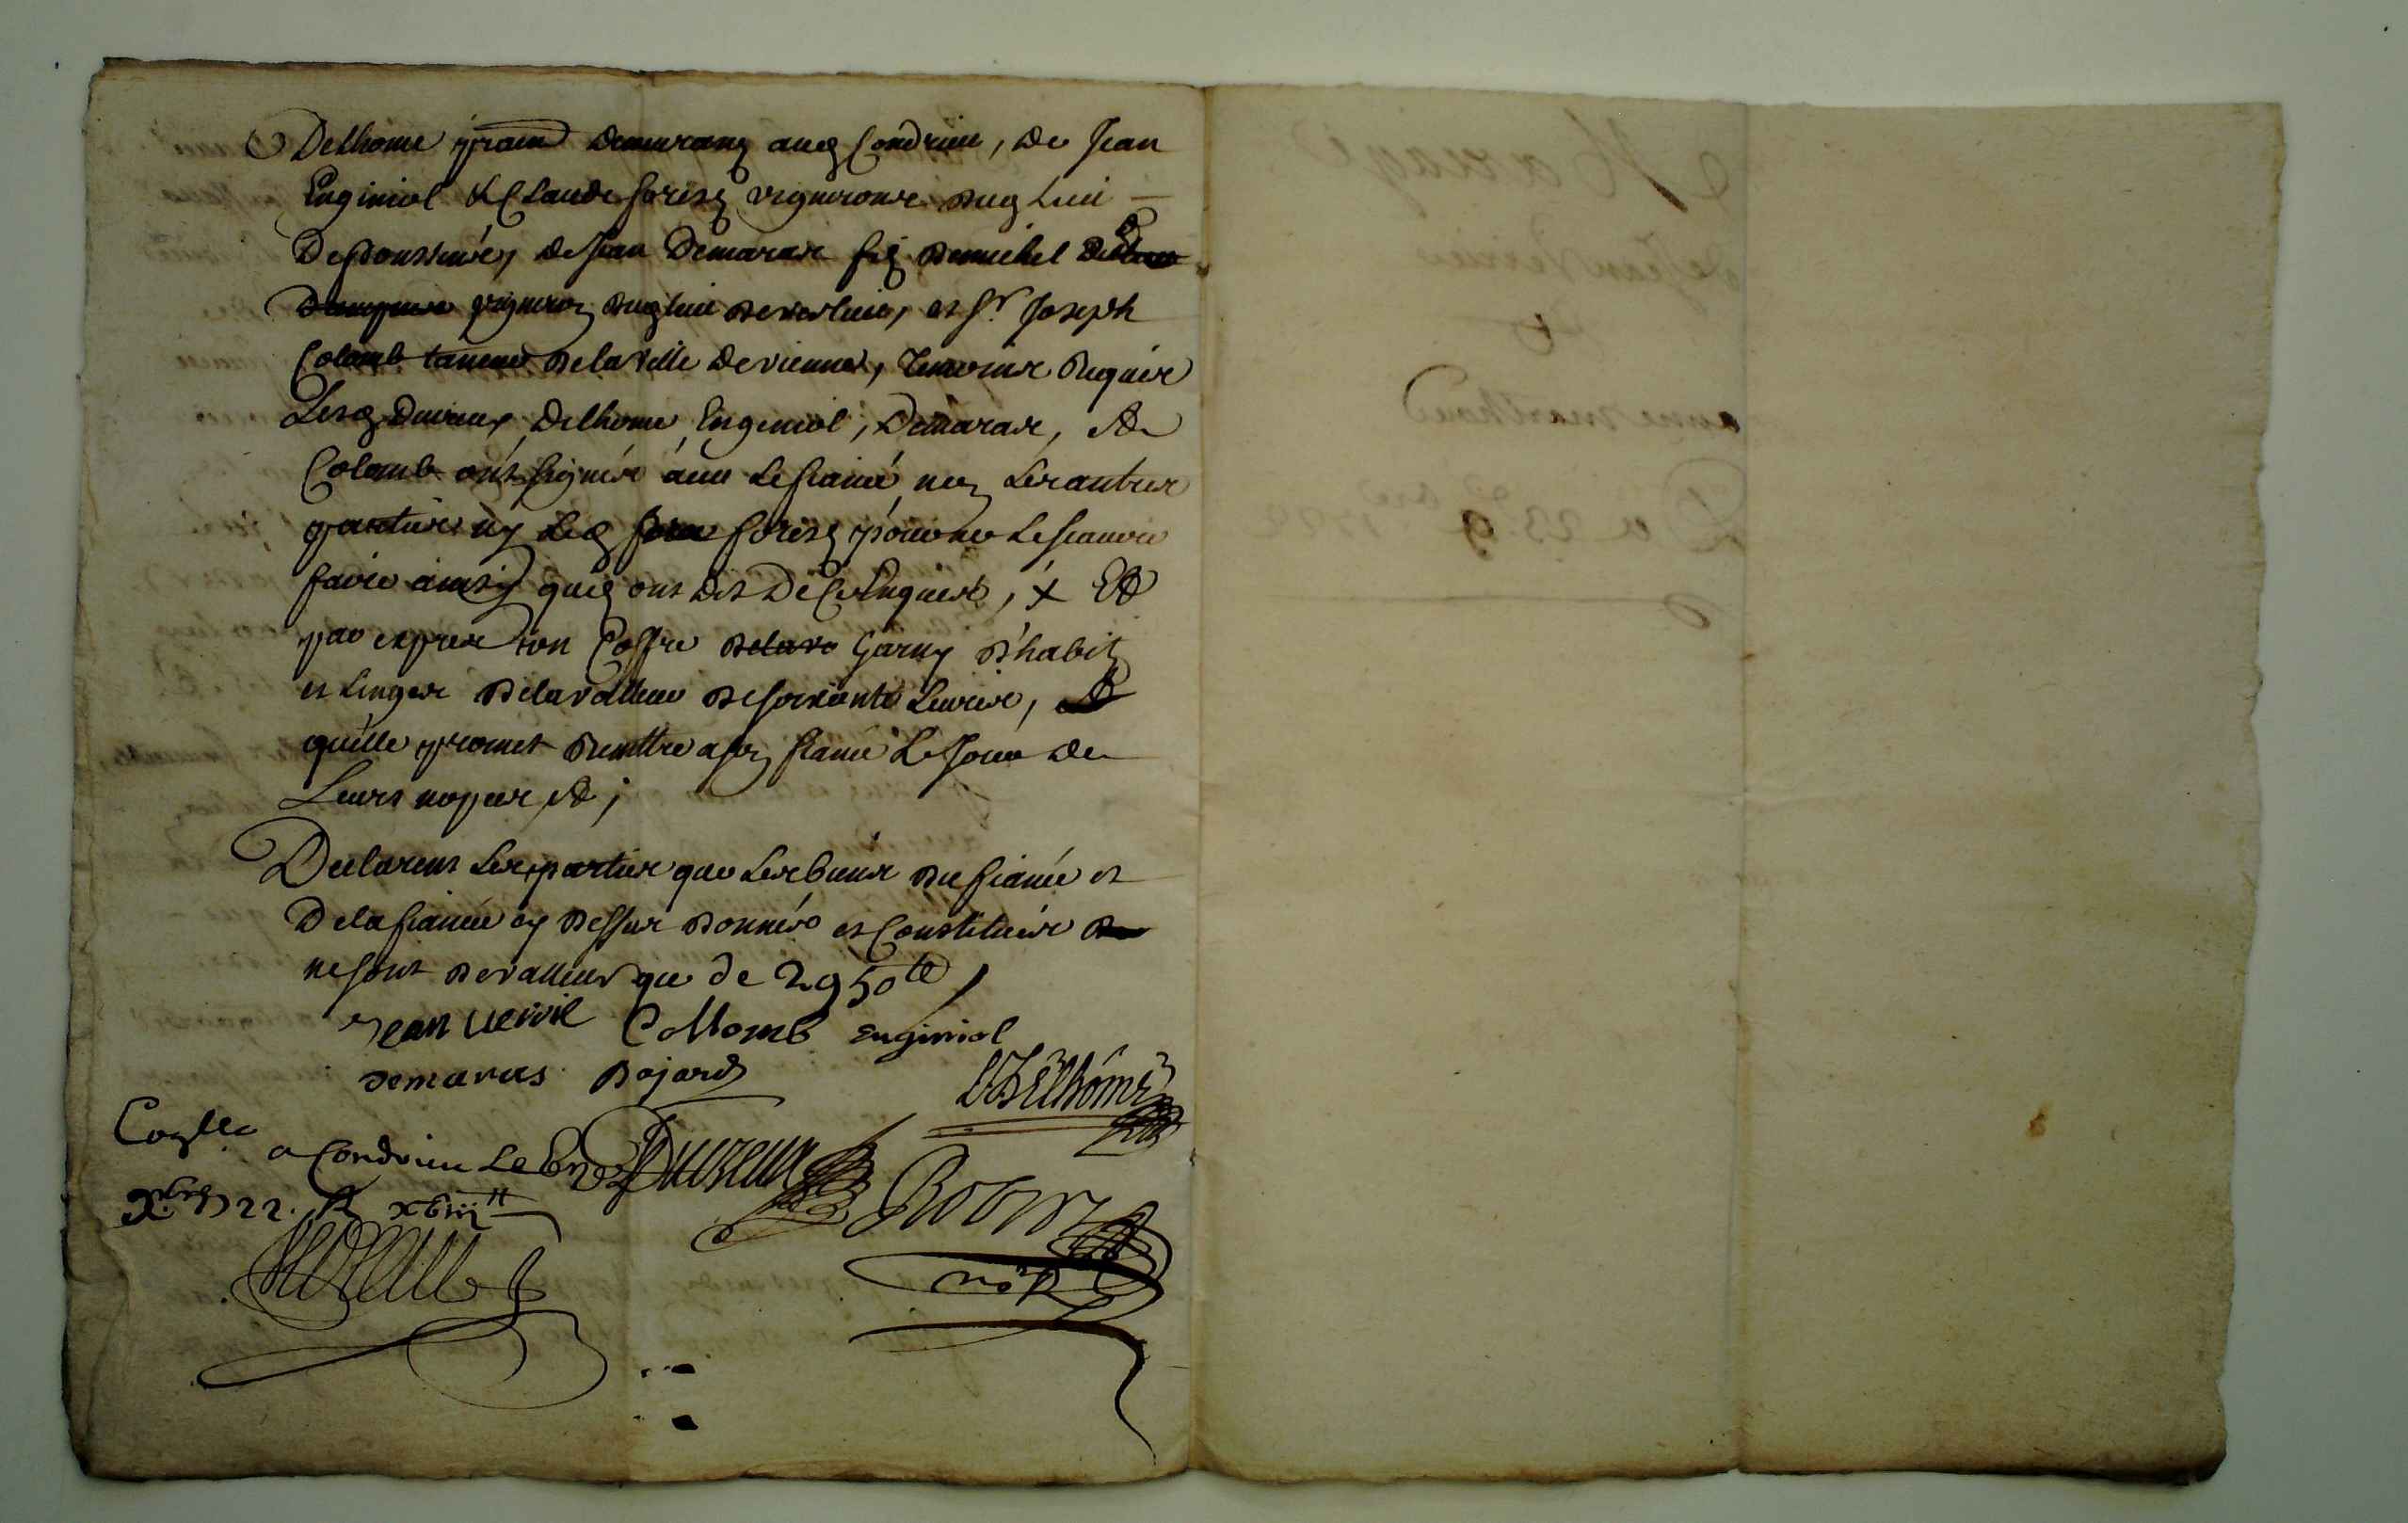 Delhome demurang aud Condrieu, de Jean
Enginiol & Claude forist vignerons dud lieu
de Jean Demaras fils de michel
vigneron dud lieu de et Sr. Joseph
Colomb taneur de la ville de vienne, temoins requis
Lesd Dureux, Delhome, Enginiol, Demaras, &
Colomb ont signés avec le fiancé non les autres
parties ny led forist pour ne le scavoir
faire ainsy quils ont dit de ce Enquis, x Et
par exprès son Coffre garny d'habits
et linges de la valleur de soixante livres,
quelle promet remettre a son fiancé le Jour de
Leurs nopces &;
Declarent les parties que les biens du fiancé et
De la fiancée cy dessus donnés et Constitués
ne sont de valleur que de 2950 tt,
Jean Collomb enginiol
demaras Bojard
Delhome
Conlle a Condrieu Le
Dureux
9bre 1722. R
not R
Mariage
de Jean Verrier
&
anne marthoud
Du 23. 9bre